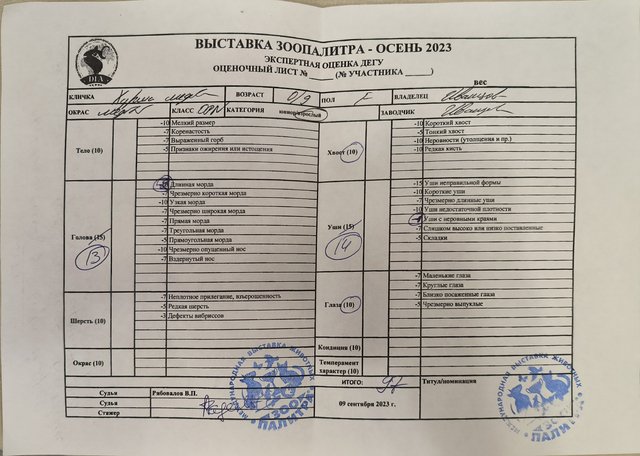 ВЫСТАВКА ЗООПАЛИТРА - ОСЕНЬ 2023
ЭКСПЕРТНАЯ ОЦЕНКА ДЕГУ
ОЦЕНОЧНЫЙ ЛИСТ № _____ (№ УЧАСТНИКА _____)
DLA
ВЕС
КЛИЧКА ВОЗРАСТ ПОЛ F ВЛАДЕЛЕЦ
ОКРАС КЛАСС КАТЕГОРИЯ юниор/взрослый ЗАВОДЧИК
Тело (10)
-10 Мелкий размер
-7 Коренастость
-7 Выраженный горб
-5 Признаки ожирения или истощения
Хвост (10)
-10 Короткий хвост
-5 Тонкий хвост
-10 Неровности (утолщения и пр.)
-10 Редкая кисть
Голова (15)
13
Длинная морда
-7 Чрезмерно короткая морда
-10 Узкая морда
-7 Чрезмерно широкая морда
-7 Прямая морда
-7 Треугольная морда
-5 Прямоугольная морда
-10 Чрезмерно опущенный нос
-7 Вздернутый нос
Уши (15)
14
-15 Уши неправильной формы
-10 Короткие уши
-7 Чрезмерно длинные уши
-10 Уши недостаточной плотности
Уши с неровными краями
-7 Слишком высоко или низко поставленные
-5 Складки
Шерсть (10)
-7 Неплотное прилегание, взъерошенность
-5 Редкая шерсть
-3 Дефекты вибриссов
Глаза (10)
-7 Маленькие глаза
-7 Круглые глаза
-7 Близко посаженные глаза
-5 Чрезмерно выпуклые
Кондиция (10)
Окрас (10)
Темперамент характер (10)
ИТОГО: 97
Титул/номинация
Судья Рябовалов В.П.
Судья
Стажер
09 сентября 2023 г.
МЕЖДУНАРОДНАЯ ВЫСТАВКА ЖИВОТНЫХ
ЗОО ПАЛИТРА
МЕЖДУНАРОДНАЯ ВЫСТАВКА ЖИВОТНЫХ
ЗОО ПАЛИТРА